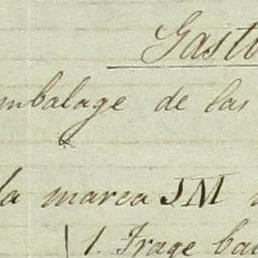 Gasto
mbalage de las
la marca JM
1. Trage ba